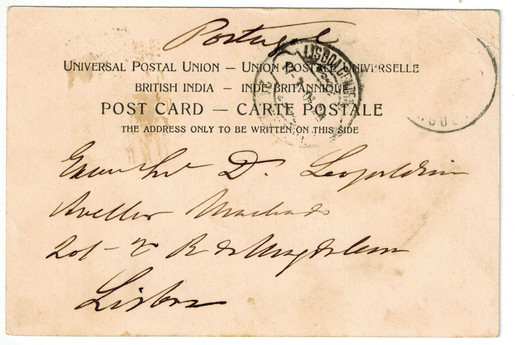 Portugal
UNIVERSAL POSTAL UNION — UNION POSTALE UNIVERSELLE
BRITISH INDIA — INDE BRITANNIQUE
POST CARD — CARTE POSTALE
THE ADDRESS ONLY TO BE WRITTEN ON THIS SIDE
LISBOA CENTRAL
D. Leopoldina
Avellar Machado
201-2 R da Magdalena
Lisboa